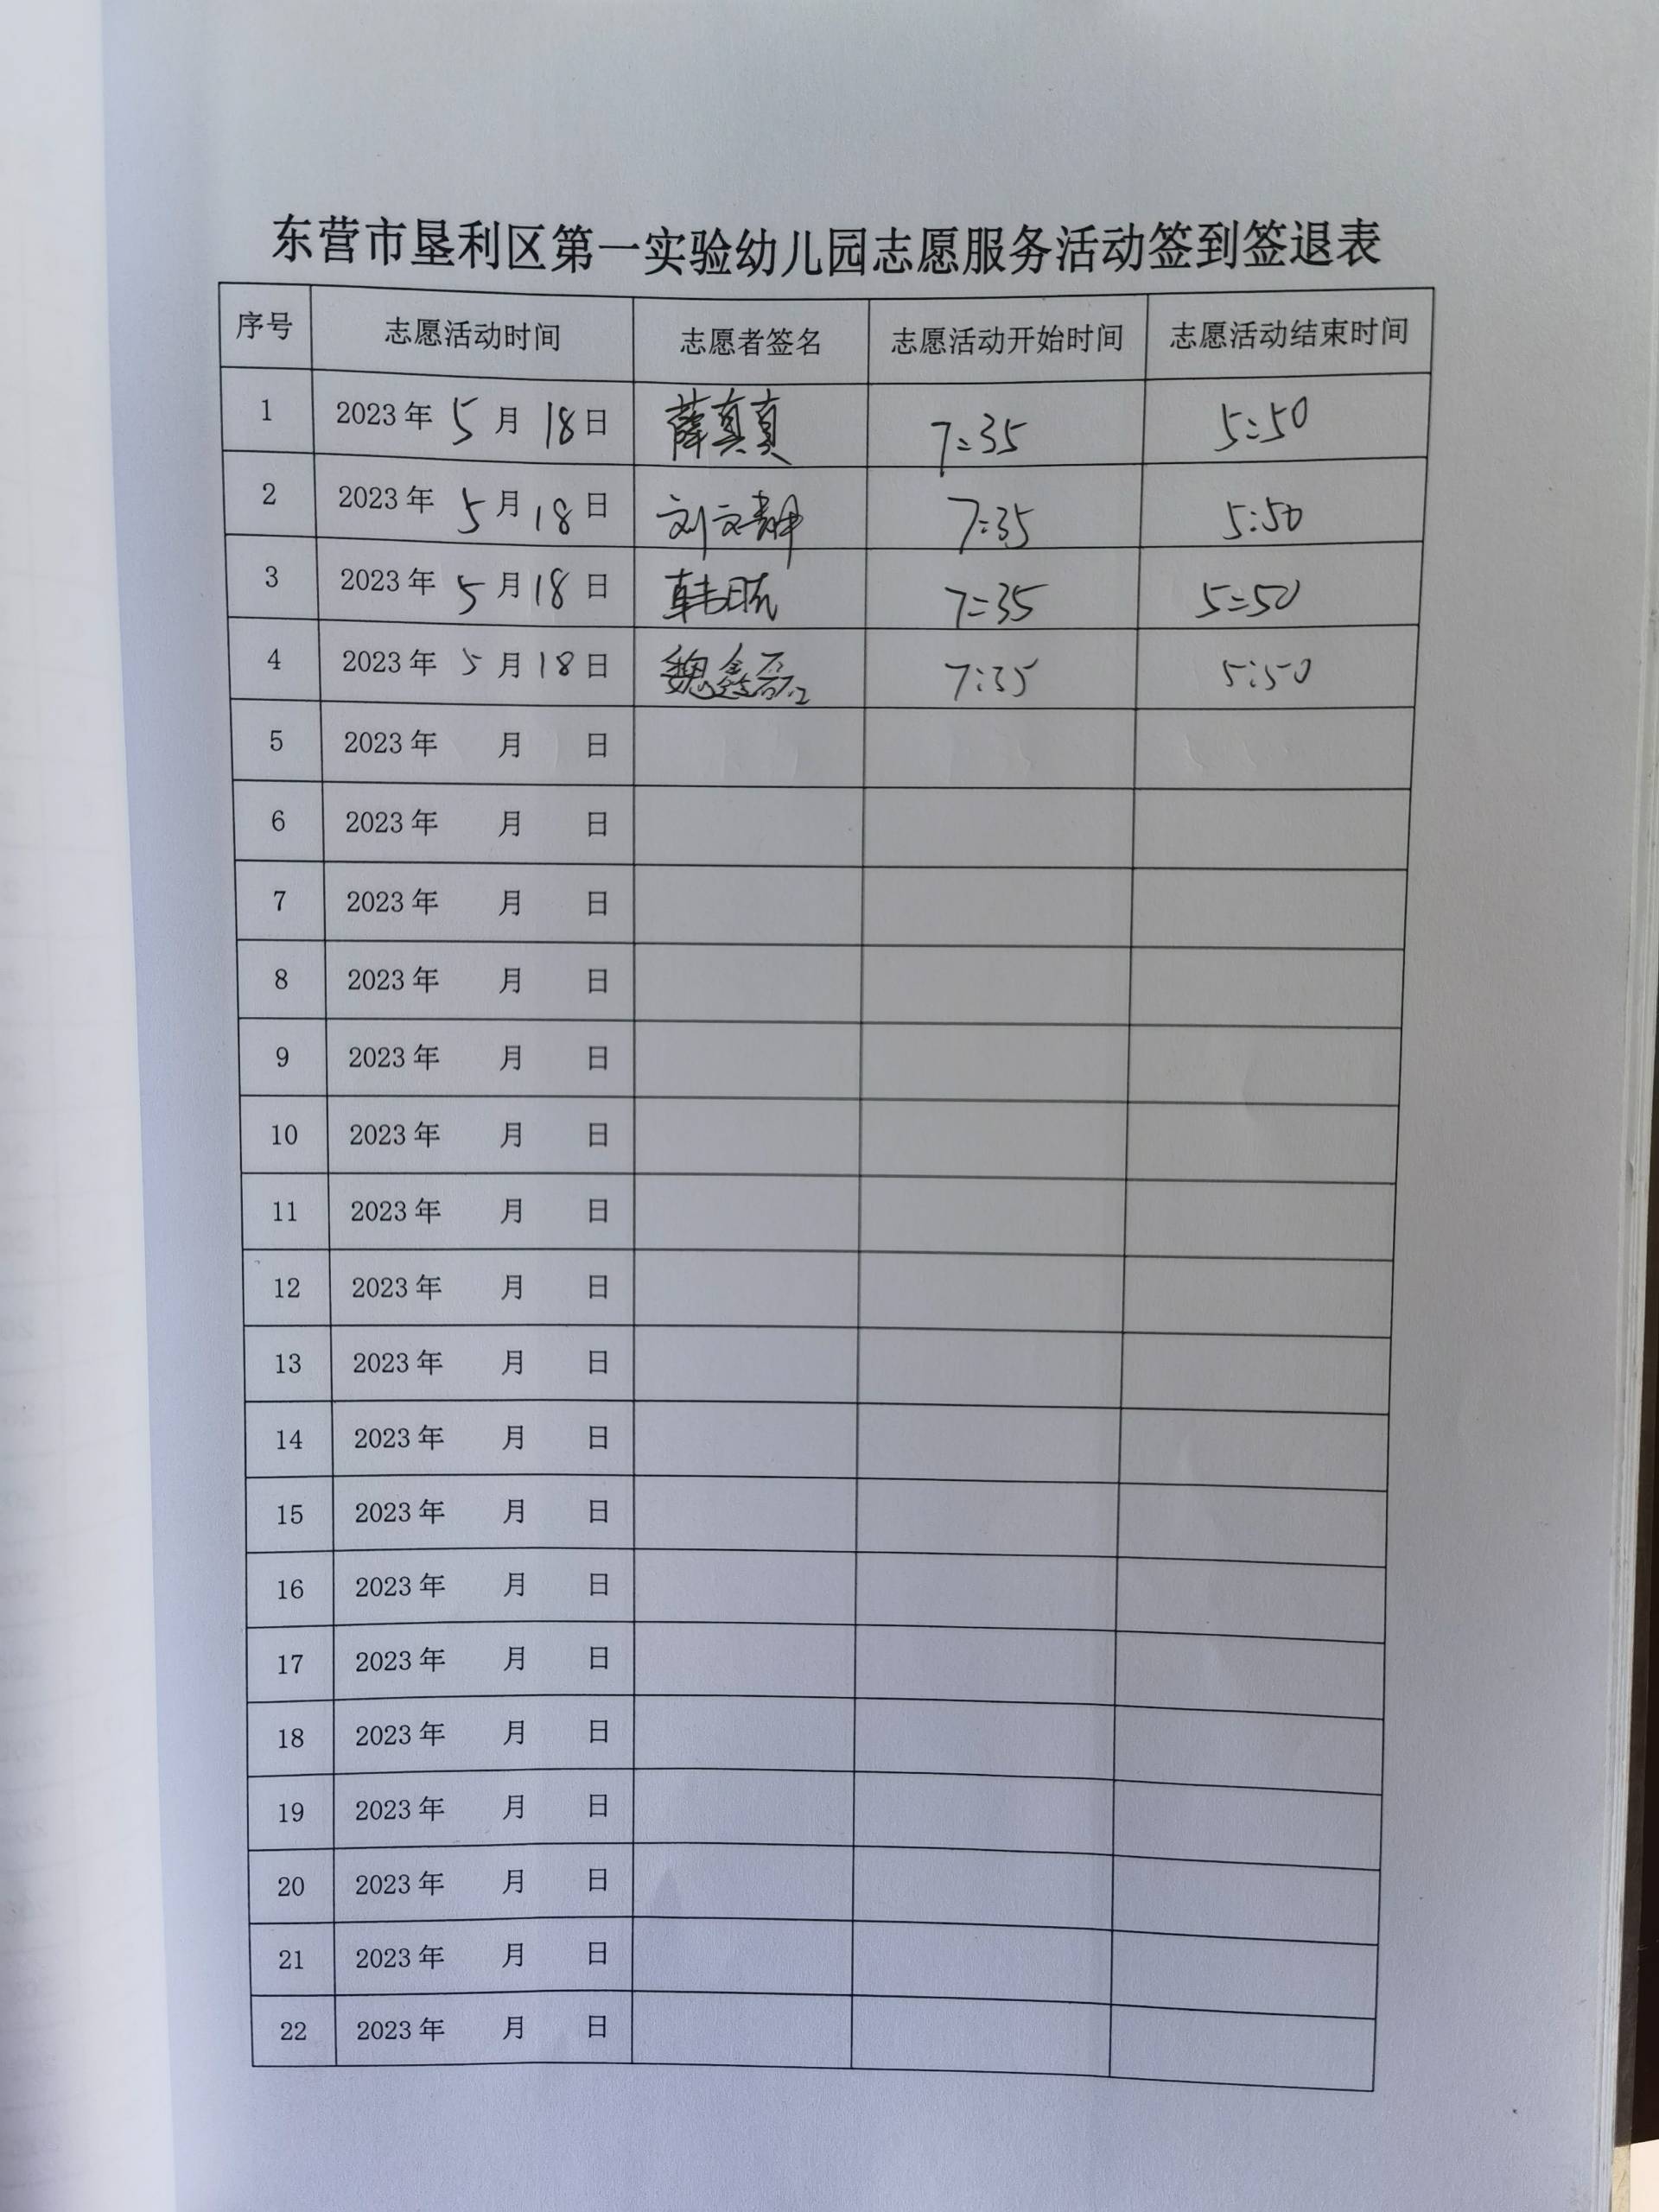 东营市垦利区第一实验幼儿园志愿服务活动签到签退表
序号 志愿活动时间 志愿者签名 志愿活动开始时间 志愿活动结束时间
1 2023年 5月 18日 薛真真 7:35 5:50
2 2023年 5月 18日 刘文静 7:35 5:50
3 2023年 5月 18日 韩 7:35 5:50
4 2023年 5月 18日 魏鑫磊 7:35 5:50
5 2023年 月 日
6 2023年 月 日
7 2023年 月 日
8 2023年 月 日
9 2023年 月 日
10 2023年 月 日
11 2023年 月 日
12 2023年 月 日
13 2023年 月 日
14 2023年 月 日
15 2023年 月 日
16 2023年 月 日
17 2023年 月 日
18 2023年 月 日
19 2023年 月 日
20 2023年 月 日
21 2023年 月 日
22 2023年 月 日